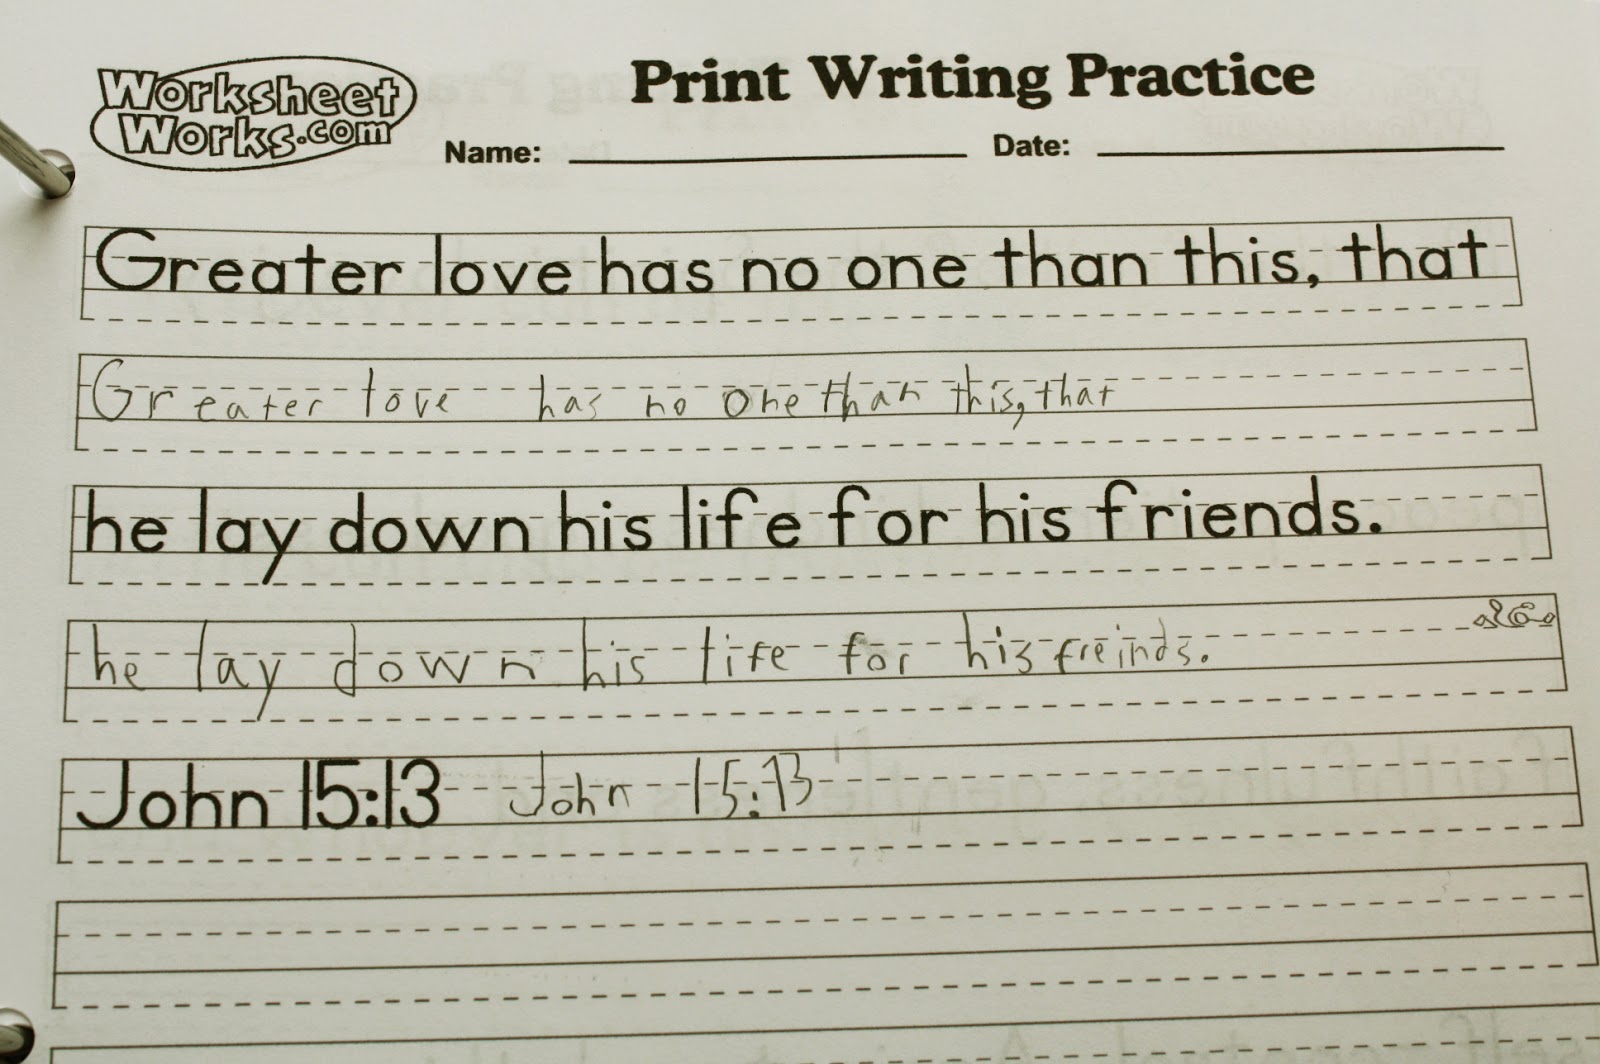 Worksheet
Works.com
Print Writing Practice
Name: Date:
Greater love has no one than this, that
Greater love has no one than this, that
he lay down his life for his friends.
he lay down his life for his freinds.
John 15:13 John 15:13